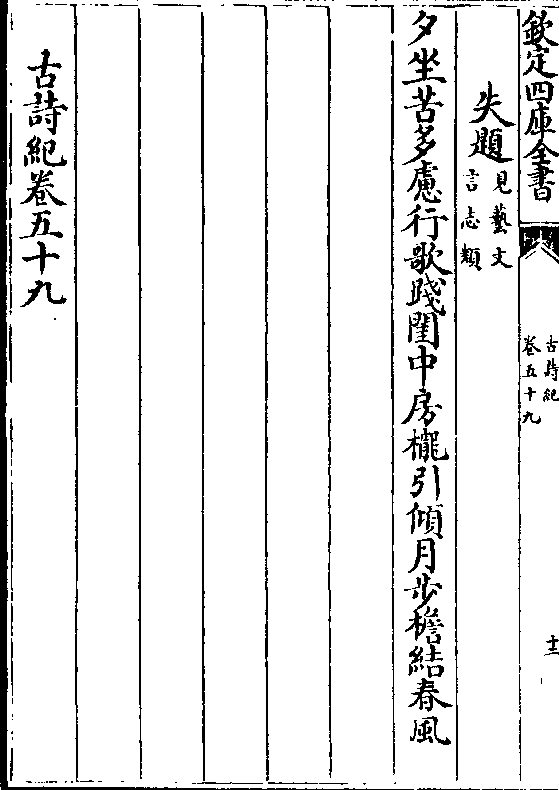 欽定四庫全書
古詩紀
卷五十九
十三
失題
見藝文
言志類
夕坐苦多慮行歌踐閨中房櫳引傾月步檐結春風
古詩紀卷五十九